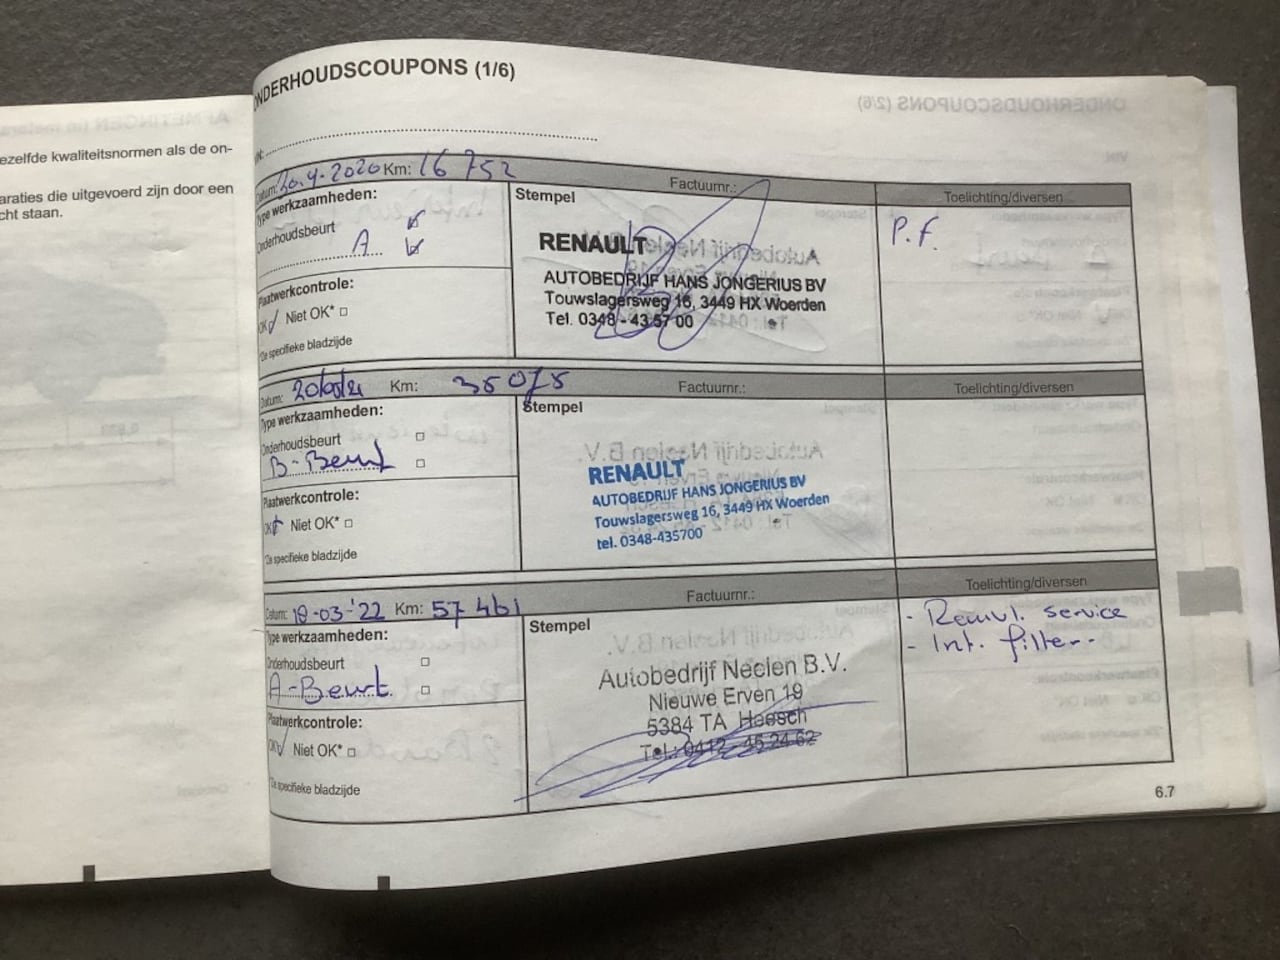 ezelfde kwaliteitsnormen als de on-
araties die uitgevoerd zijn door een
cht staan.
ONDERHOUDSCOUPONS (1/6)
Datum: 30.4-2020 Km: 16 752 Factuurnr.: Toelichting/diversen
Type werkzaamheden:
Onderhoudsbeurt
A
Plaatwerkcontrole:
OK Niet OK*
*De specifieke bladzijde
Stempel
RENAULT
AUTOBEDRIJF HANS JONGERIUS BV
Touwslagersweg 16, 3449 HX Woerden
Tel. 0348 - 43 57 00
P.f.
Datum: Km: 35075 Factuurnr.: Toelichting/diversen
Type werkzaamheden:
Onderhoudsbeurt
B-Beurt
Plaatwerkcontrole:
OK Niet OK*
*De specifieke bladzijde
Stempel
RENAULT
AUTOBEDRIJF HANS JONGERIUS BV
Touwslagersweg 16, 3449 HX Woerden
tel. 0348-435700
Datum: 18-03-'22 Km: 57461 Factuurnr.: Toelichting/diversen
Type werkzaamheden:
Onderhoudsbeurt
A-Beurt
Plaatwerkcontrole:
OK Niet OK*
*De specifieke bladzijde
Stempel
Autobedrijf Neelen B.V.
Nieuwe Erven 19
5384 TA Heesch
Tel.: 0412 - 45 24 62
- service
- Int. filter
6.7